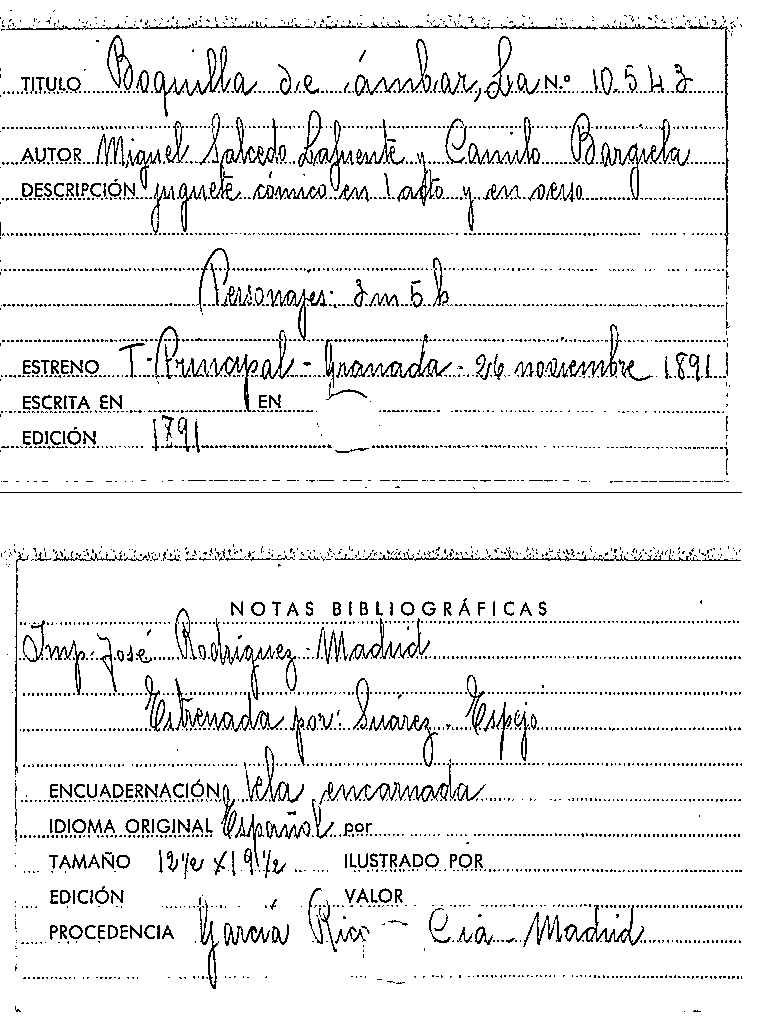 TITULO Boquilla de ámbar, La N.º 10.543
AUTOR Miguel Salcedo Lafuente y Camilo Bargiela
DESCRIPCIÓN juguete cómico en 1 acto y en verso
Personajes: 3 m 5 h
ESTRENO T. Principal - Granada - 26 noviembre 1891
ESCRITA EN EN
EDICIÓN 1891
NOTAS BIBLIOGRÁFICAS
Imp. José Rodríguez - Madrid
Estrenada por: Suárez - Espejo
ENCUADERNACIÓN tela encarnada
IDIOMA ORIGINAL Español por
TAMAÑO 12 1/2 x 19 1/2 ILUSTRADO POR
EDICIÓN VALOR
PROCEDENCIA García Rico - Cía - Madrid